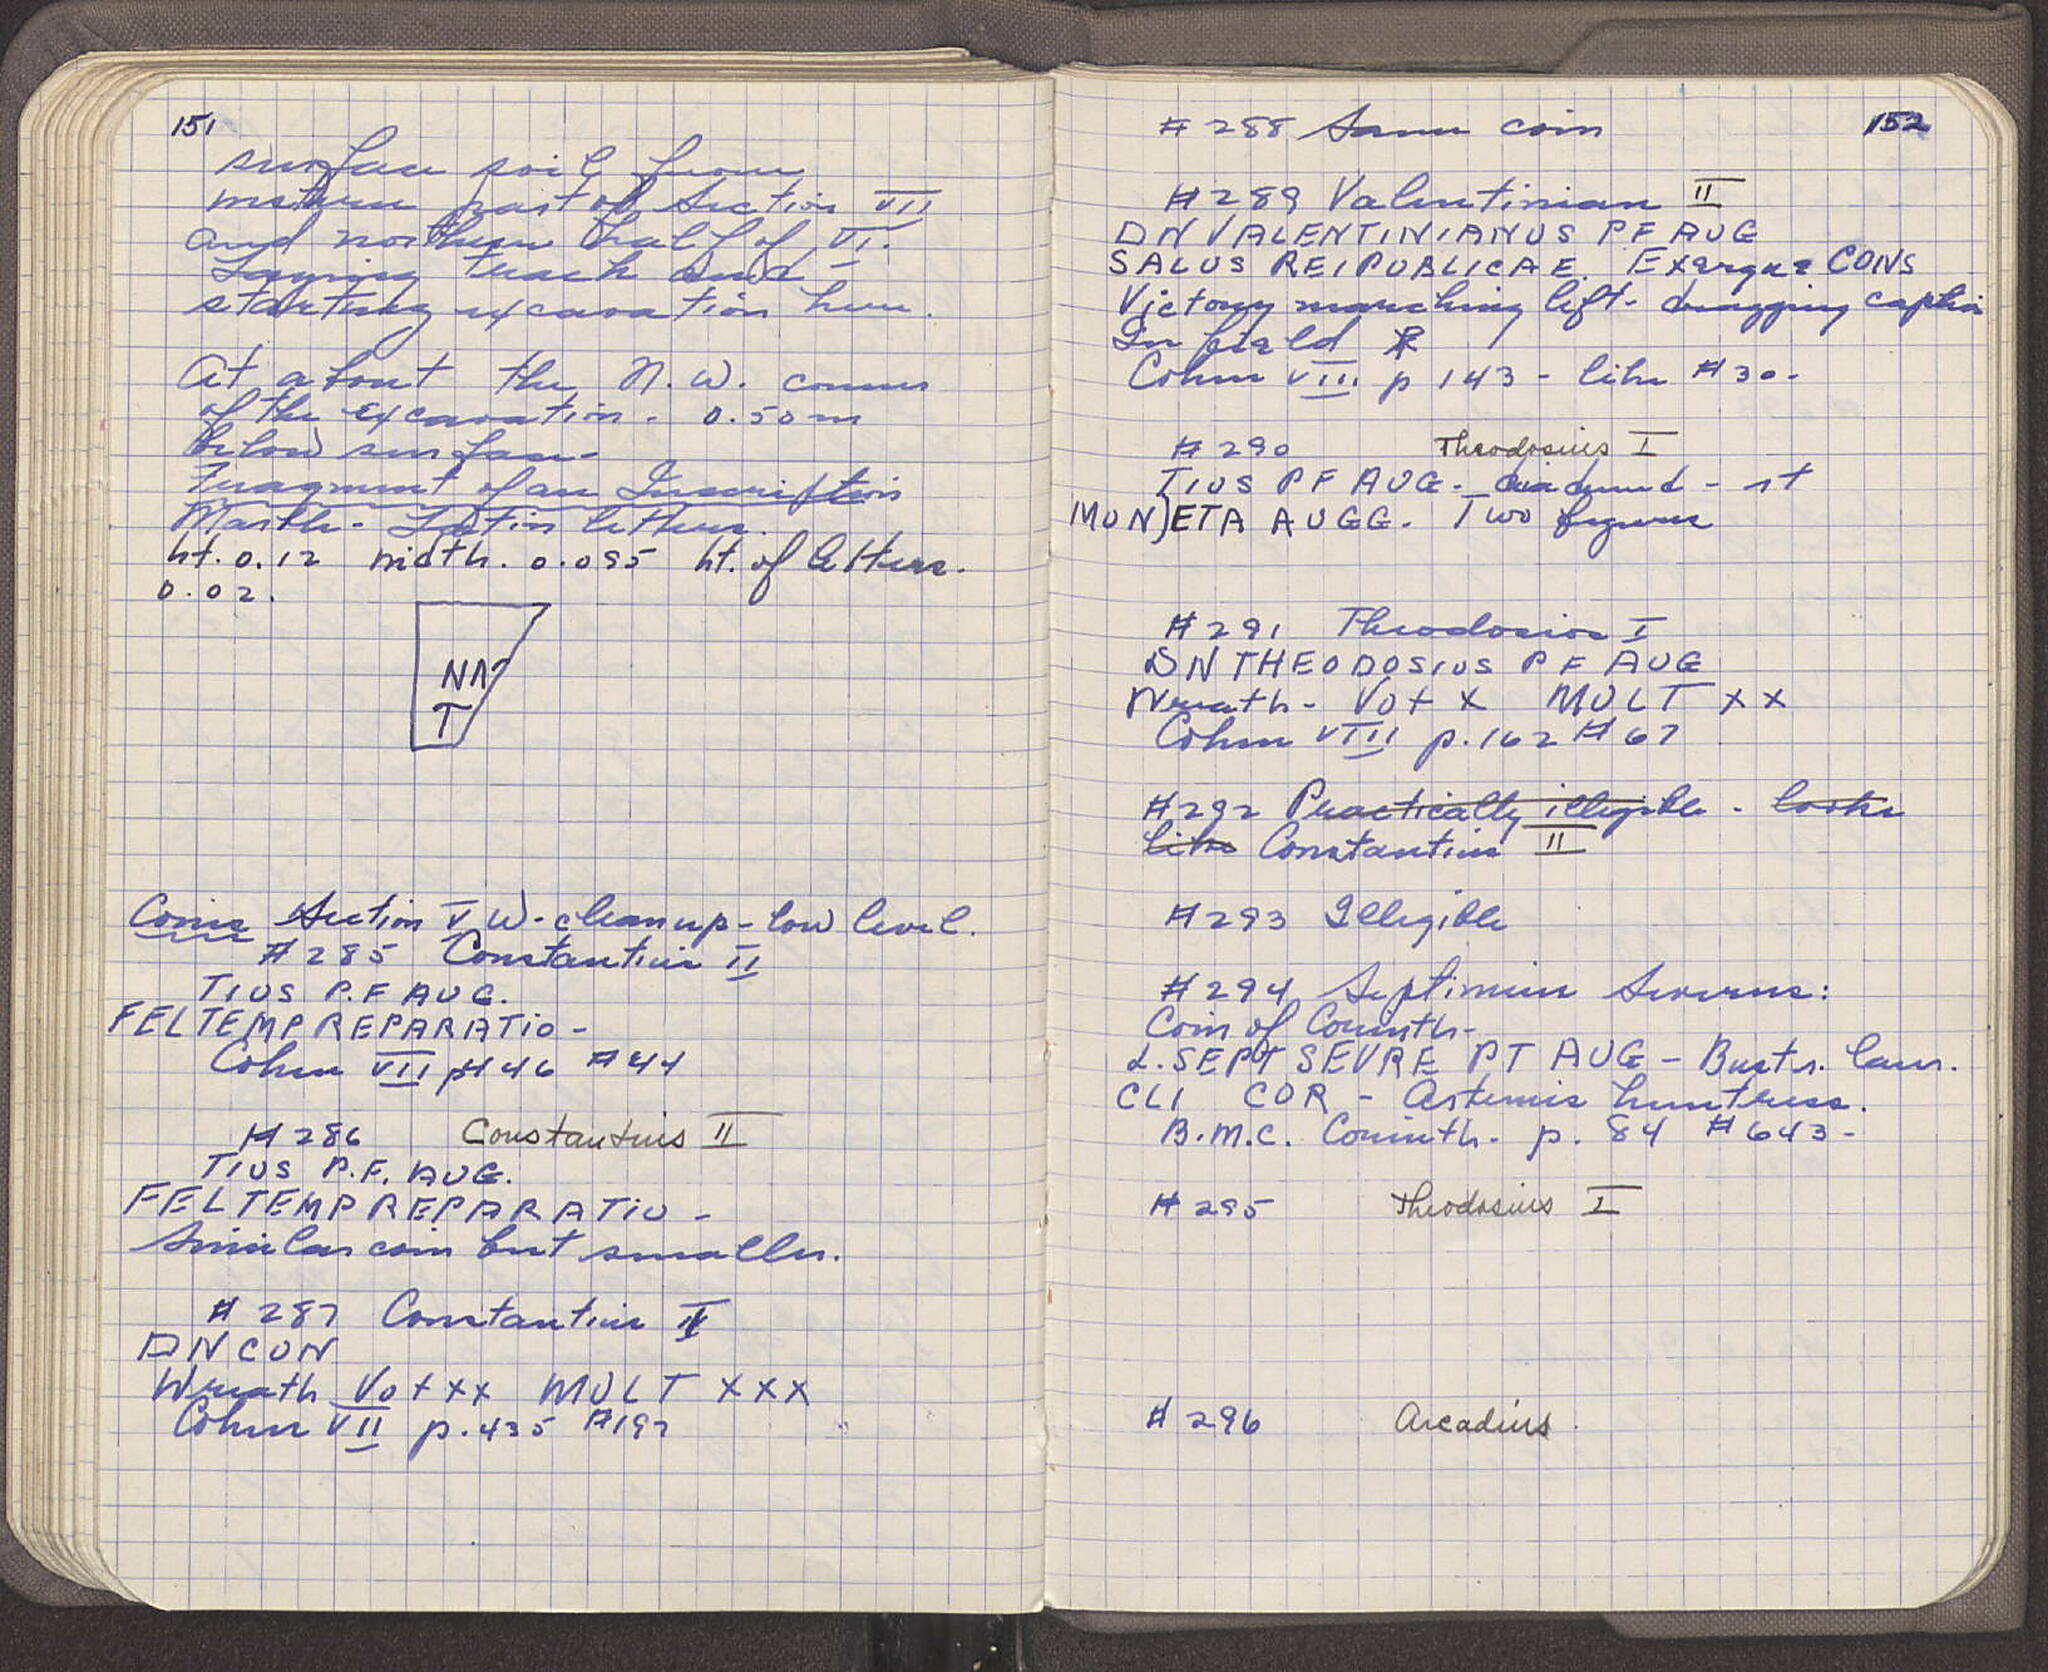 151
surface soil from
western part of Section VII
and northern half of VI.
Laying track and -
starting excavation here.
At about the N.W. corner
of the excavation - 0.50 m
below surface -
Fragment of an Inscription
Marble - Latin letters.
ht. 0.12 width. 0.095 ht. of letters.
0.02.
NA
T
Coins Section V W - clean up - low level.
#285 Constantius II
TIUS P.F AUG.
FEL TEMP REPARATIO -
Cohen VII p446 #44
#286 Constantius II
TIUS P.F. AUG.
FEL TEMP REPARATIO -
Similar coin but smaller.
#287 Constantius II
DN CON
Wreath Vot xx MULT XXX
Cohen VII p. 435 #197
152
#288 Same coin
#289 Valentinian II
DN VALENTINIANUS P.F AUG
SALUS REIPUBLICAE. Exergue CONS
Victory marching left - dragging captive
In field ⳨
Cohen VIII p 143 - like #30 -
#290 Theodosius I
TIUS P F AUG - diademed - rt
MON]ETA AUGG. Two figures
#291 Theodosius I
DN THEODOSIUS P F AUG
Wreath - Vot X MULT XX
Cohen VIII p. 162 #67
#292 Practically illegible - looks
like Constantius II
#293 Illegible
#294 Septimius Severus:
Coin of Corinth -
L. SEPT SEVRE PT AUG - Bust r. laur.
CLI COR - Artemis huntress.
B.M.C. Corinth - p. 84 #643 -
#295 Theodosius I
#296 Arcadius